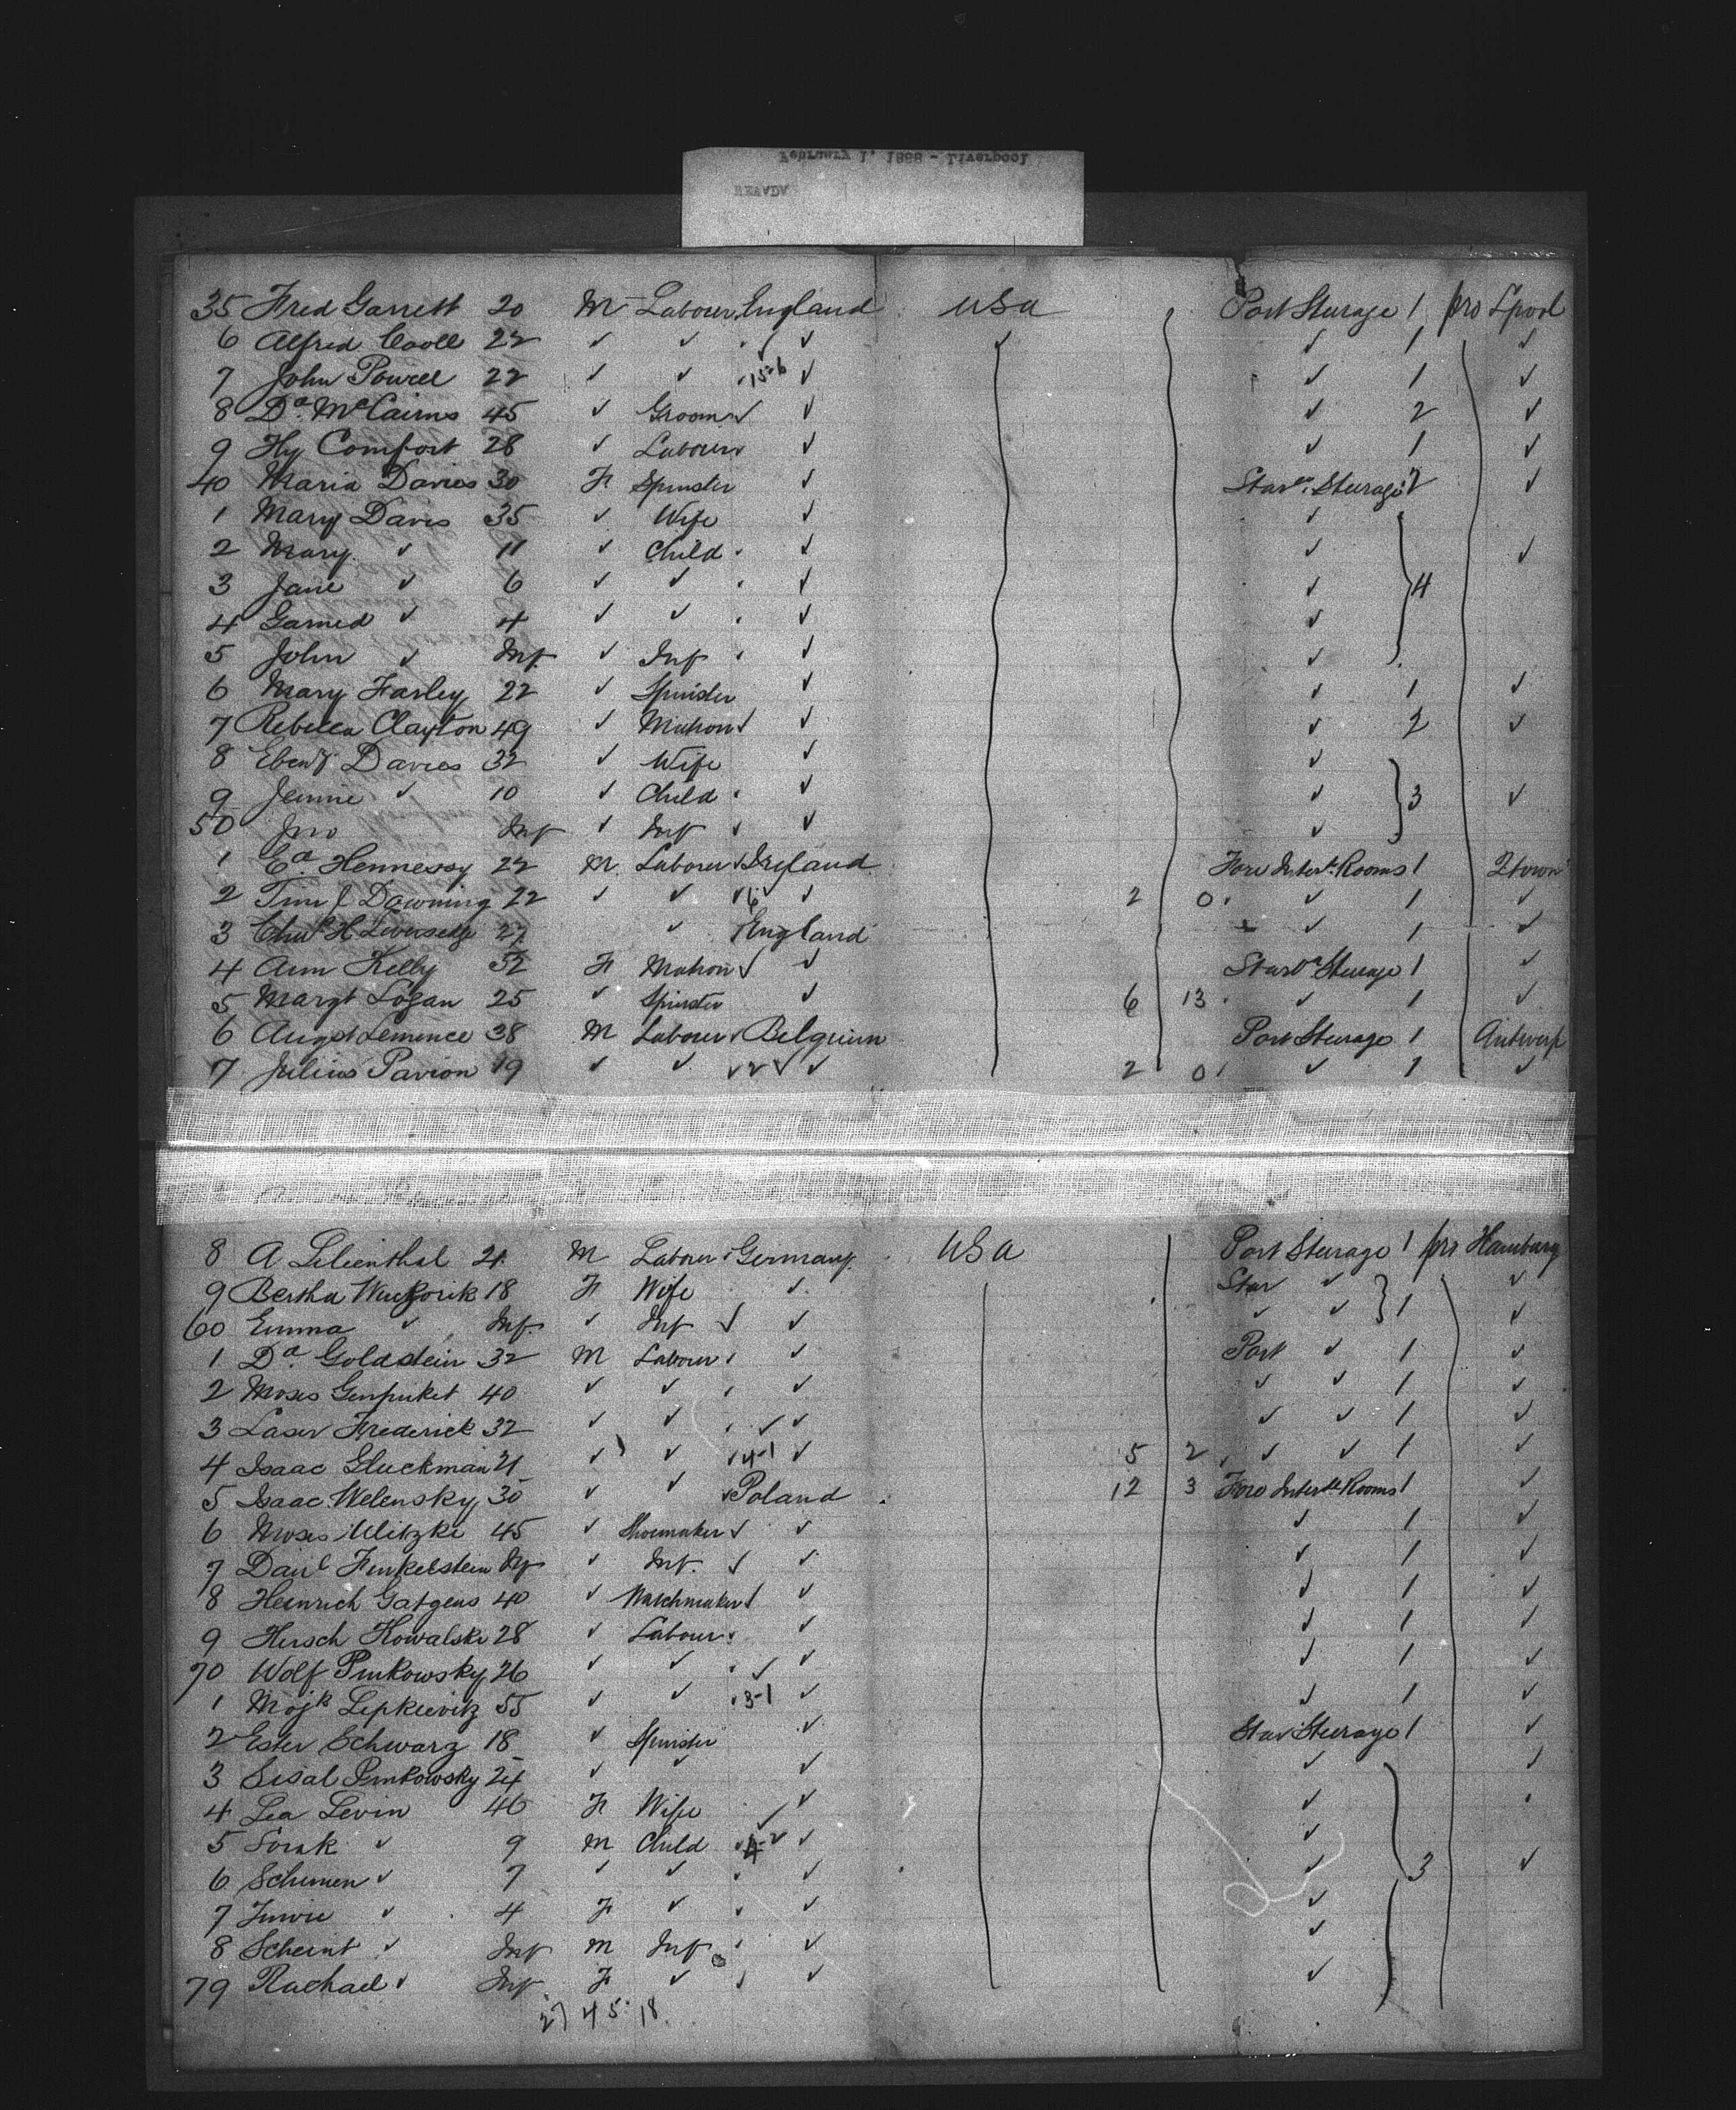 February 1, 1888 - Liverpool
NEVADA
35 Fred Garrett 20 M Labour England USA Port Steerage 1 pro Lpool
6 Alfred Cooll 22 ✓ ✓ ✓ ✓ ✓ 1 ✓
7 John Powell 22 ✓ ✓ 15-6 ✓ ✓ 1 ✓
8 Da. McCairns 45 ✓ Groom ✓ ✓ 2 ✓
9 Hy Comfort 28 ✓ Labour ✓ ✓ 1 ✓
40 Maria Davies 30 F Spinster ✓ Starb. Steerage 2 ✓
1 Mary Davis 35 ✓ Wife ✓ ✓
2 Mary ✓ 11 ✓ Child ✓ ✓ ✓
3 Jane ✓ 6 ✓ ✓ ✓ ✓ 4
4 Garned ✓ 4 ✓ ✓ ✓ ✓
5 John ✓ Inf. ✓ Inf ✓ ✓
6 Mary Farley 22 ✓ Spinster ✓ ✓ 1 ✓
7 Rebecca Clayton 49 ✓ Matron ✓ ✓ 2 ✓
8 Ebenz Davies 32 ✓ Wife ✓ ✓
9 Jennie ✓ 10 ✓ Child ✓ ✓ 3 ✓
50 Jno Inf ✓ Inf ✓ ✓ ✓
1 Ea. Hennessy 22 M. Labour Ireland Fore Intert. Rooms 1 Qtown
2 Tim J Downing 22 ✓ ✓ 6 ✓ 2 0 ✓ 1 ✓
3 Chas H Liversedge 27 ✓ England ✓ 1 ✓
4 Ann Kelly 52 F Matron ✓ ✓ Starb Steerage 1 ✓
5 Margt Logan 25 ✓ Spinster ✓ 6 13 ✓ 1 ✓
6 Augst Lemence 38 M Labour Belgium Port Steerage 1 Antwerp
7 Julius Pavion 19 ✓ ✓ 2 ✓ ✓ 2 0 ✓ 1 ✓
8 A Lilienthal 21 M Labour Germany USA Port Steerage 1 pro Hamburg
9 Bertha 18 F Wife ✓ Star ✓ ✓
60 Emma ✓ Inf. ✓ Inf ✓ ✓ ✓ ✓ 1 ✓
1 Da. Goldstein 32 M Labour ✓ Port ✓ 1 ✓
2 Moses 40 ✓ ✓ ✓ ✓ ✓ 1 ✓
3 Laser Frederick 32 ✓ ✓ ✓ ✓ ✓ ✓ 1 ✓
4 Isaac Gluckman 21 ✓ ✓ 4-1 ✓ 5 2 ✓ ✓ 1 ✓
5 Isaac Welensky 30 ✓ ✓ Poland 12 3 Fore Intert. Rooms 1 ✓
6 Moses Ulitzki 45 ✓ Shoemaker ✓ ✓ ✓ 1 ✓
7 Danl Finkelstein Inf ✓ Inf. ✓ ✓ ✓ 1 ✓
8 Heinrich Gatgens 40 ✓ Watchmaker ✓ ✓ 1 ✓
9 Hersch Kowalski 28 ✓ Labour ✓ ✓ 1 ✓
70 Wolf Pinkowsky 26 ✓ ✓ ✓ ✓ ✓ 1 ✓
1 Mojk Lepkievitz 55 ✓ ✓ 3-1 ✓ ✓ 1 ✓
2 Ester Schwarz 18 ✓ Spinster ✓ Star Steerage 1 ✓
3 Sisal Pinkowsky 24 ✓ ✓ ✓ ✓ ✓
4 Lea Levin 46 F Wife ✓ ✓ ✓
5 Sorak ✓ 9 M Child 4-2 ✓ ✓
6 Schimen ✓ 7 ✓ ✓ ✓ ✓ 3 ✓
7 ✓ 4 F ✓ ✓ ✓
8 Scheint ✓ Inf M Inf ✓ ✓
79 Rachael ✓ Inf F ✓ ✓ ✓ ✓
27 45 18